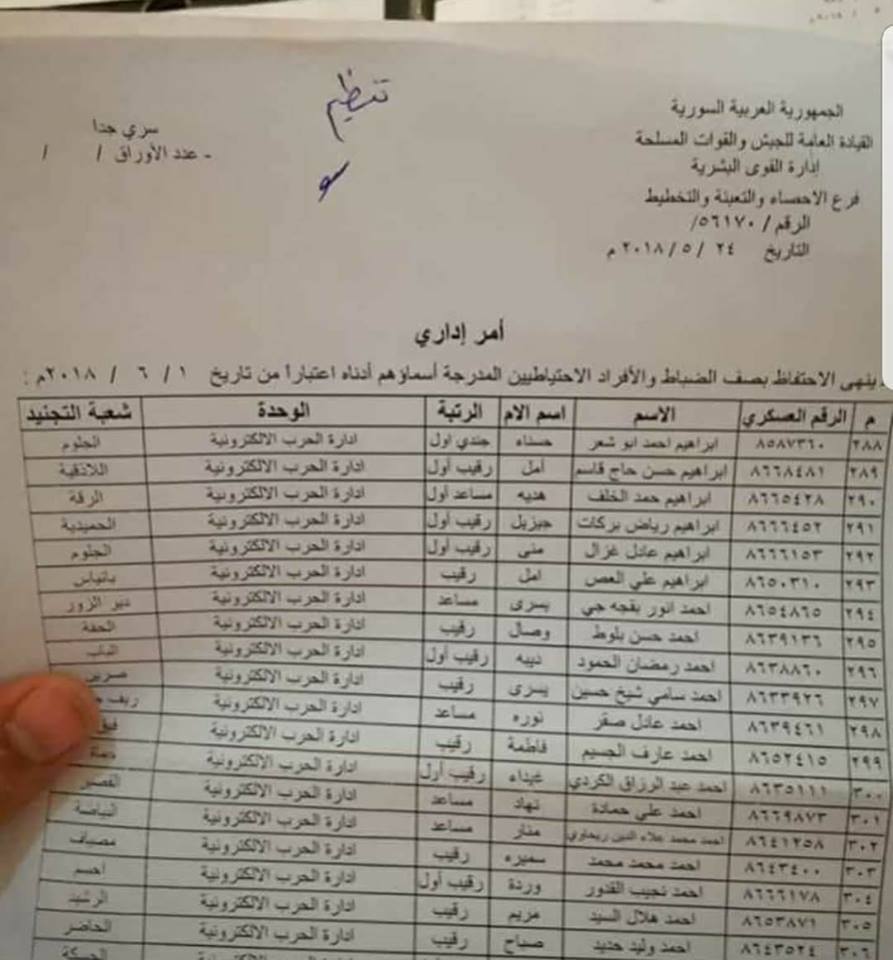 الجمهورية العربية السورية
القيادة العامة للجيش والقوات المسلحة
إدارة القوى البشرية
فرع الاحصاء والتعبئة والتخطيط
الرقم / ٥٦١٧٠/
التاريخ ٢٤ / ٥ / ٢٠١٨ م
تنظيم
سري جدا
- عدد الأوراق / /
أمر إداري
ينهى الاحتفاظ بصف الضباط والأفراد الاحتياطيين المدرجة أسماؤهم أدناه اعتباراً من تاريخ ١ / ٦ / ٢٠١٨م :
م الرقم العسكري الاسم اسم الام الرتبة الوحدة شعبة التجنيد
٢٨٨ ٨٥٨٧٣٦٠ ابراهيم احمد ابو شعر حسناء جندي اول ادارة الحرب الالكترونية الجلوم
٢٨٩ ٨٦٦٨٤٨١ ابراهيم حسن حاج قاسم أمل رقيب أول ادارة الحرب الالكترونية اللاذقية
٢٩٠ ٨٦٦٥٤٢٨ ابراهيم حمد الخلف هديه مساعد أول ادارة الحرب الالكترونية الرقة
٢٩١ ٨٦٦٦٤٥٢ ابراهيم رياض بركات جيزيل رقيب أول ادارة الحرب الالكترونية الحميدية
٢٩٢ ٨٦٦٦١٥٣ ابراهيم عادل غزال منى رقيب أول ادارة الحرب الالكترونية الجلوم
٢٩٣ ٨٦٥٠٣١٠ ابراهيم علي العص امل رقيب ادارة الحرب الالكترونية بانياس
٢٩٤ ٨٦٥٤٨٦٥ احمد انور بقجه جي يسرى مساعد ادارة الحرب الالكترونية دير الزور
٢٩٥ ٨٦٣٩١٣٦ احمد حسن بلوط وصال رقيب ادارة الحرب الالكترونية الحفة
٢٩٦ ٨٦٣٨٨٦٠ احمد رمضان الحمود ديبه رقيب أول ادارة الحرب الالكترونية الباب
٢٩٧ ٨٦٣٣٩٢٦ احمد سامي شيخ حسين يسرى رقيب ادارة الحرب الالكترونية
٢٩٨ ٨٦٣٩٤٦١ احمد عادل صقر نوره مساعد ادارة الحرب الالكترونية ريف
٢٩٩ ٨٦٥٢٤١٥ احمد عارف الجسيم فاطمة رقيب ادارة الحرب الالكترونية
٣٠٠ ٨٦٣٥١١١ احمد عبد الرزاق الكردي غيداء رقيب أول ادارة الحرب الالكترونية حماة
٣٠١ ٨٦٦٩٨٧٣ احمد علي حمادة نهاد مساعد ادارة الحرب الالكترونية القصير
٣٠٢ ٨٦٤١٢٥٨ احمد محمد علاء الدين ريحاوي منار مساعد ادارة الحرب الالكترونية البياضة
٣٠٣ ٨٦٤٣٤٠٠ احمد محمد محمد سميره رقيب ادارة الحرب الالكترونية مصياف
٣٠٤ ٨٦٦٦١٧٨ احمد نجيب القدور وردة رقيب أول ادارة الحرب الالكترونية احسم
٣٠٥ ٨٦٥٣٨٧١ احمد هلال السيد مريم رقيب ادارة الحرب الالكترونية الرشيد
٣٠٦ ٨٦٤٣٥٢٤ احمد وليد حديد صباح رقيب ادارة الحرب الالكترونية الحاضر
ادارة الحرب الالكترونية الحسكة